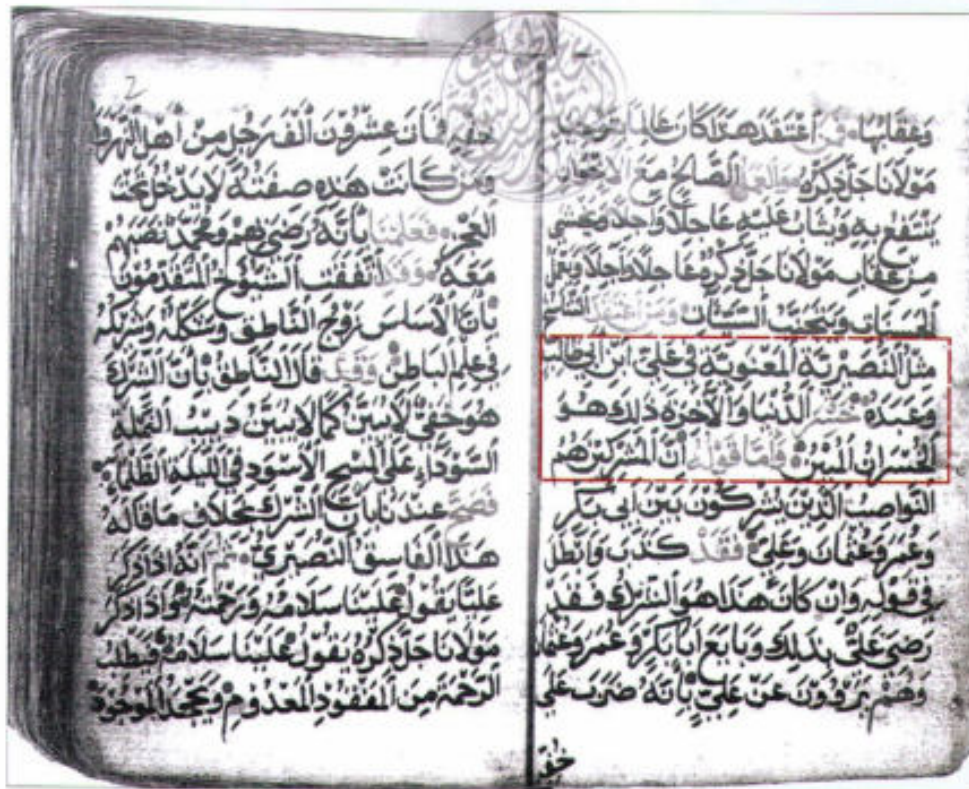 وعقابها، فمن اعتقد هذا كان عالما بتوحيد
مولانا جل ذكره مع العمل الصالح مع الإخوان
ينتفع به ويثاب عليه عاجلا وآجلا ويخشى
من عقاب مولانا جل ذكره عاجلا وآجلا ويعمل
الحسنات ويتجنب السيئات ومن اعتقد التناسخ
مثل النصيرية المعنوية في علي ابن أبي طالب
وعبده خسر الدنيا والآخرة ذلك هو
الخسران المبين فأما قوله أن المشركين هم
النواصب الذين يشركون بين أبي بكر
وعمر وعثمان وعلي فقد كذب وأبطل
في قوله وإن كان هذا هو الشرك فقد
رضي علي بذلك وبايع أبا بكر وعمر وعثمان
وهم يروون عن علي بأنه ضرب على
خفر
2
خفير فبان عشرون ألف رجل من أهل النهروان
ومن كانت هذه صفته لا يدخل تحت
العجز فعلمنا بأنه رضي بهم ومحمد نصبهم
معه وقد اتفقت الشيوخ المتقدمون
بأن الأساس زوج الناطق وشكله وشريكه
في علم الباطن وقد قال الناطق بأن الشرك
هو خفي لا يستبين كما لا يستبين دبيب النملة
السوداء على المسح الأسود في الليلة الظلماء
فصح عندنا بأن الشرك بخلاف ما قاله
هذا الفاسق النصيري ثم أنه إذا ذكر
عليا يقول علينا سلامه ورحمته وإذا ذكر
مولانا جل ذكره يقول علينا سلامه فيطلب
الرحمة من المفقود المعدوم ويجحد الموجود